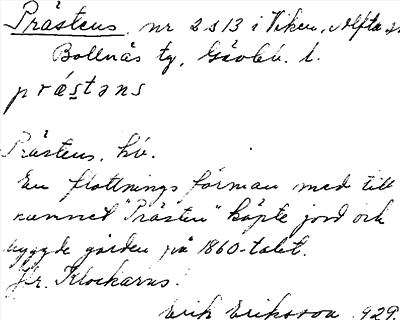 Prästens, nr 2 o 13 i Viken, Alfta sn
Bollnäs tg, Gävleb. l.
prástəns
Prästens, hv.
En flottningsförman med till
namnet "Prästen" köpte jord och
byggde gården på 1860-talet.
Jfr. Klockarns!
Erik Eriksson 1929.